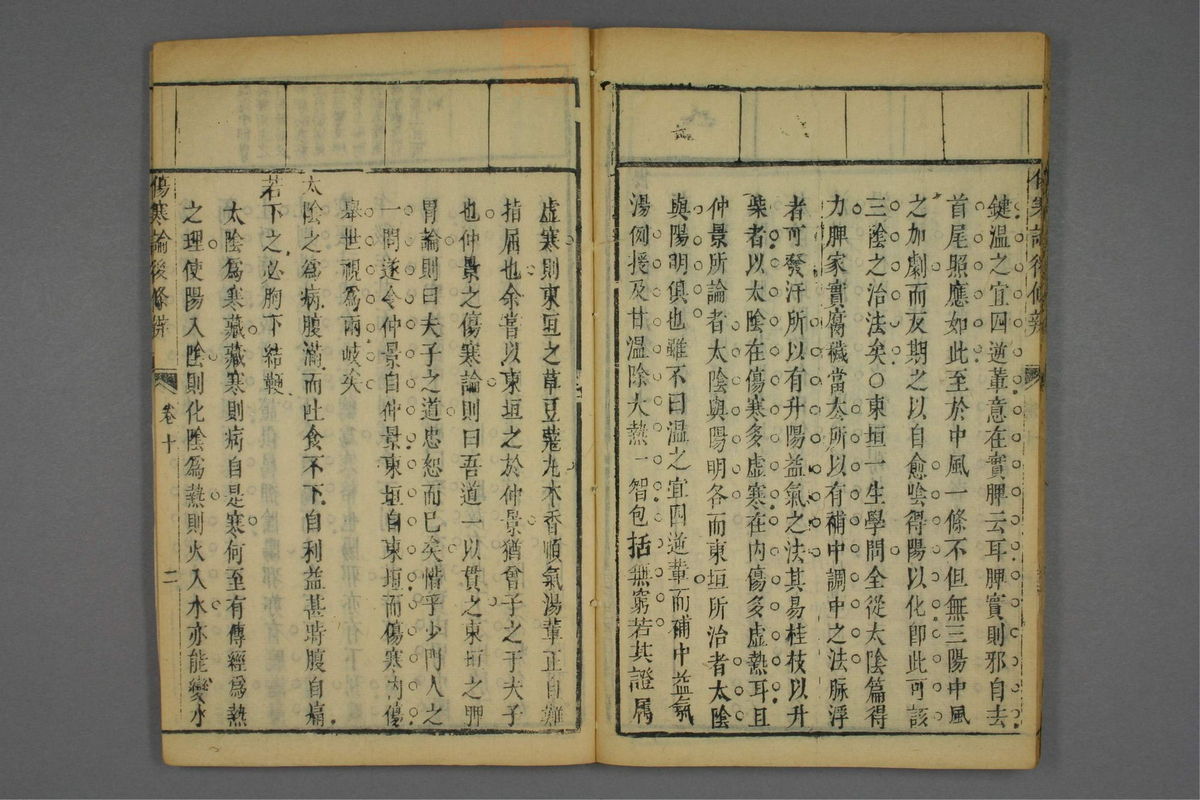 鍵溫之宜四逆輩意在實脾云耳脾實則邪自去
首尾照應如此至於中風一條不但無三陽中風
之加劇而反期之以自愈陰得陽以化卽此可該
三陰之治法矣○東垣一生學問全從太陰篇得
力脾家實腐穢當去所以有補中調中之法脉浮
者可發汗所以有升陽益氣之法其易桂枝以升
柴者以太陰在傷寒多虛寒在內傷多虛熱耳且
仲景所論者太陰與陽明各而東垣所治者太陰
與陽明俱也雖不曰溫之宜四逆輩而補中益氣
湯例授及甘溫除大熱一智包括無窮若其證屬
虛寒則東垣之草豆蔻丸木香順氣湯輩正自難
指屈也余嘗以東垣之於仲景猶曾子之于夫子
也仲景之傷寒論則曰吾道一以貫之東垣之脾
胃論則曰夫子之道忠恕而已矣惜乎少門人之
一問遂令仲景自仲景東垣自東垣而傷寒內傷
舉世視爲兩岐矣
太陰之爲病腹滿而吐食不下自利益甚時腹自痛
若下之必胸下結鞕
太陰爲寒藏藏寒則病自是寒何至有傳經爲熱
之理使陽入陰則化陰爲熱則火入水亦能變水
傷寒論後條辨 卷十 二